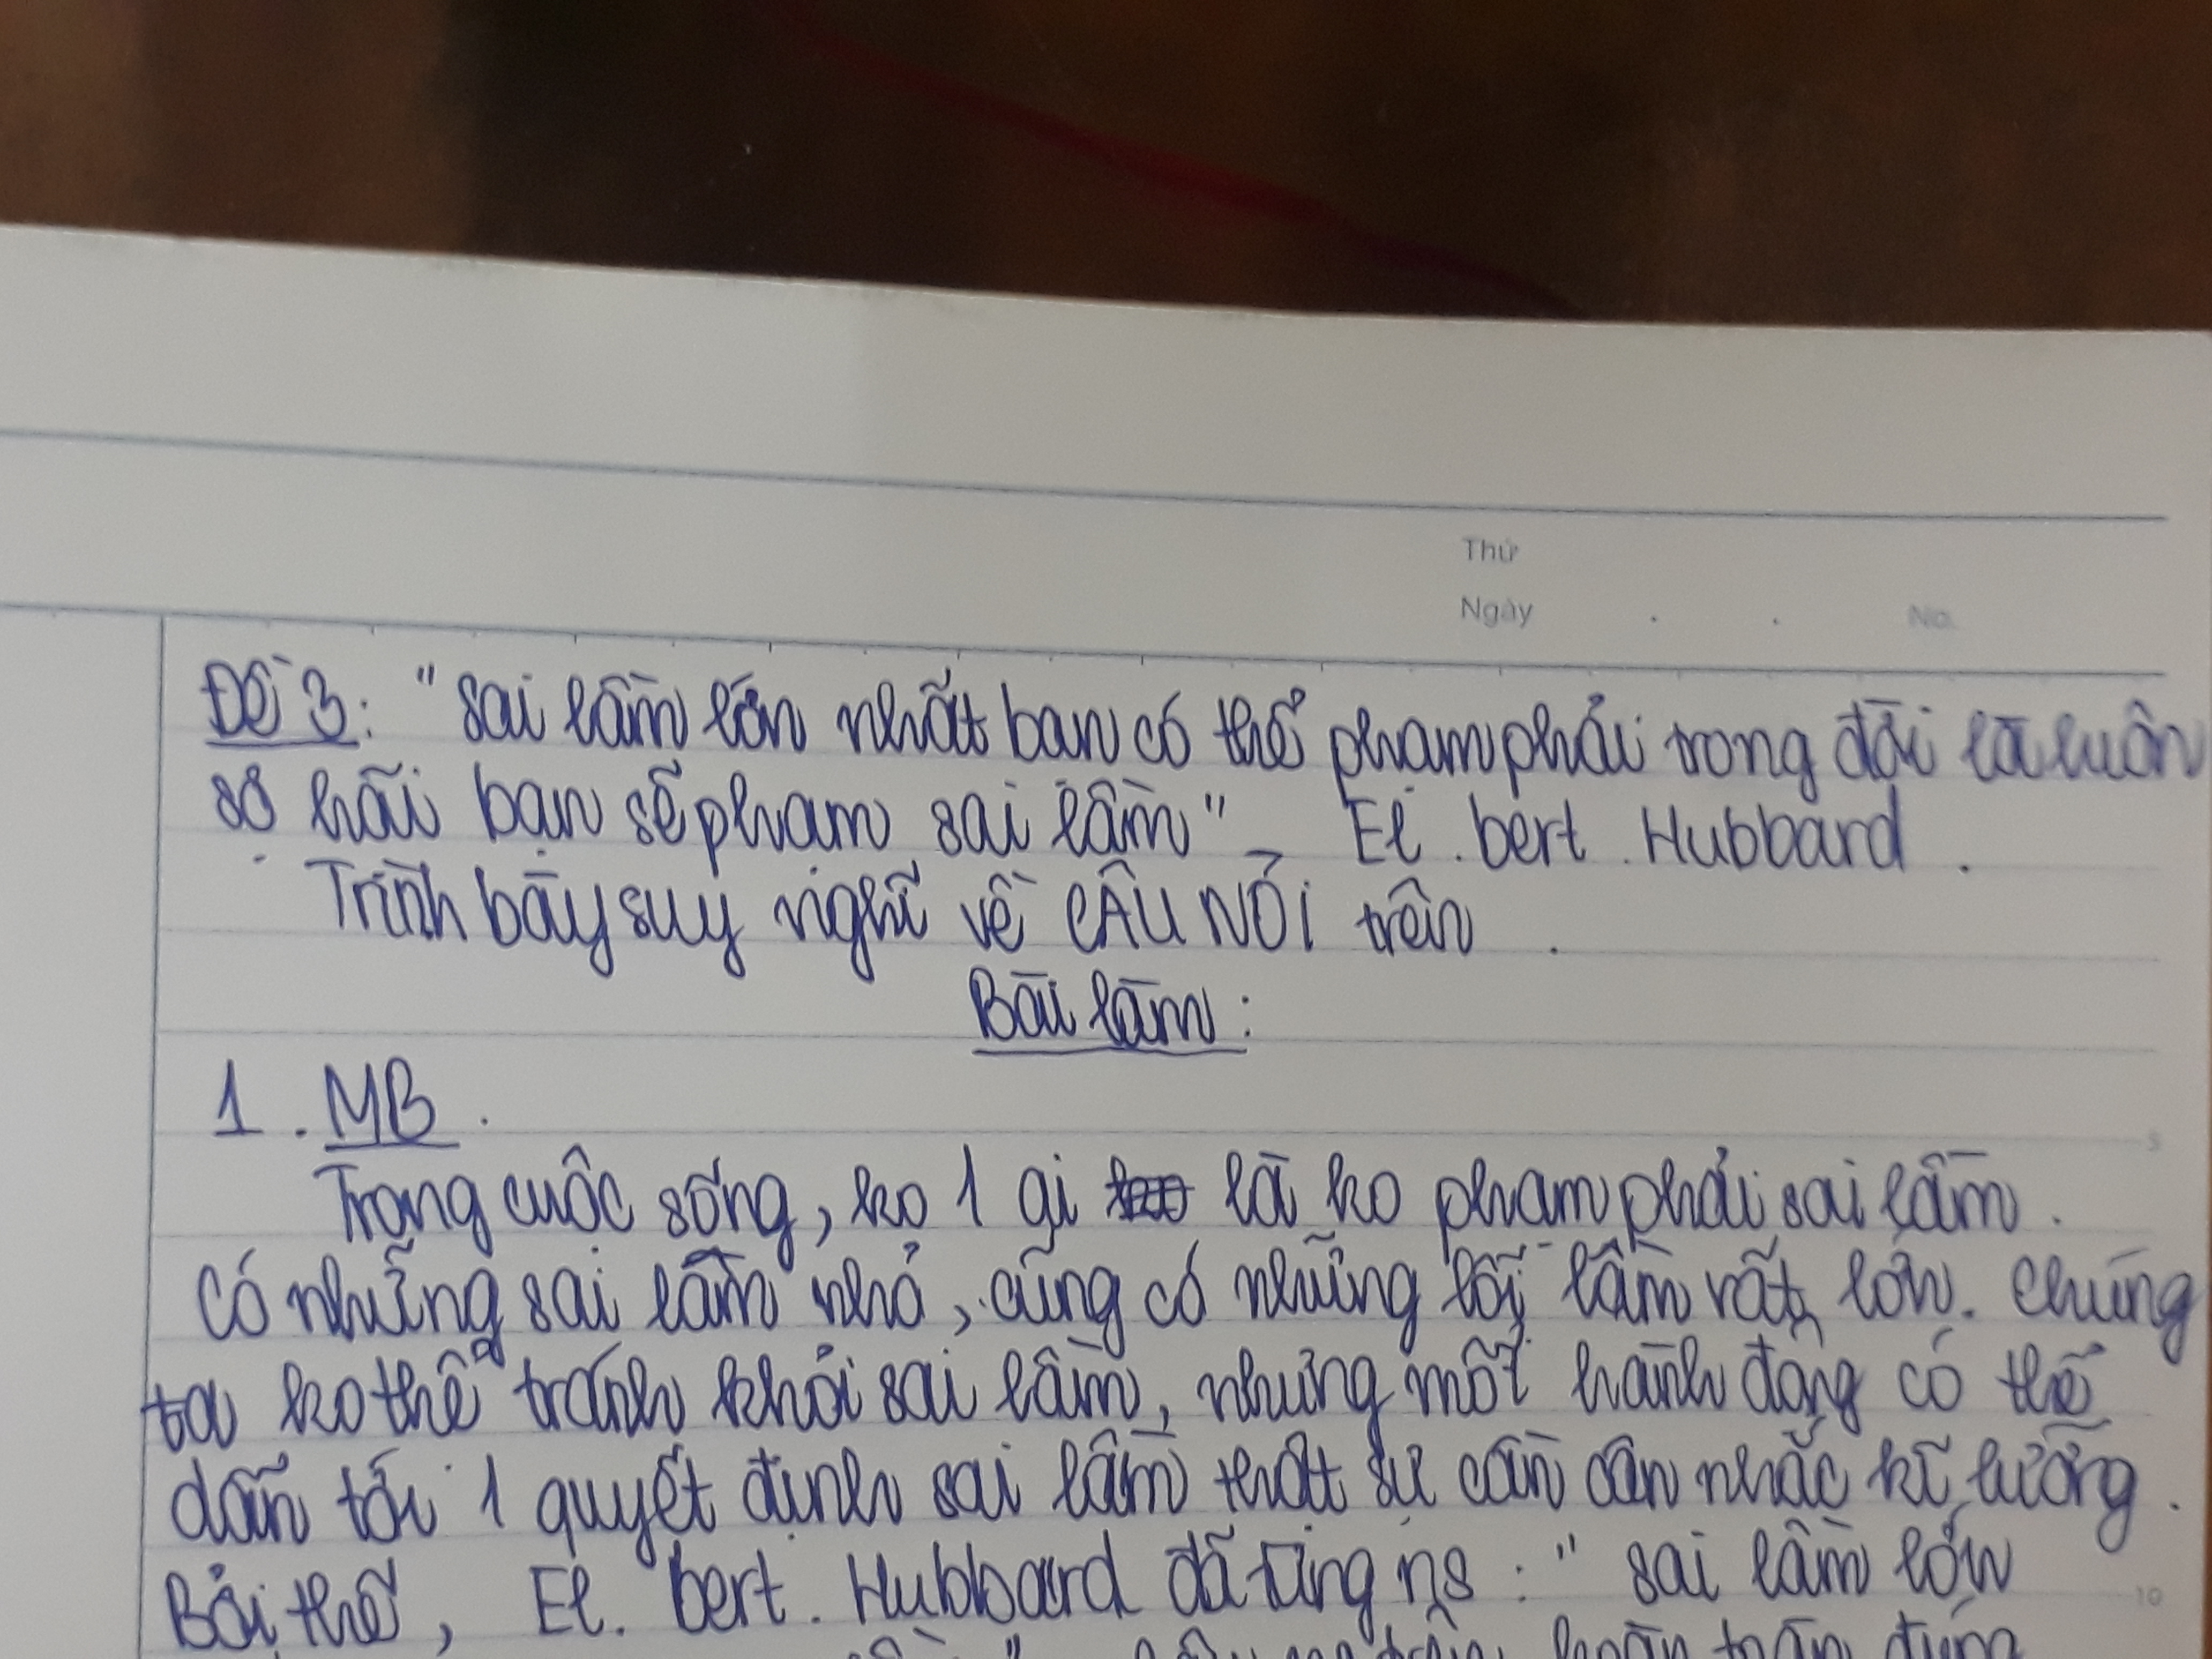 Thứ
Ngày . . No.
Đề 3: "Sai lầm lớn nhất bạn có thể phạm phải trong đời là luôn
sợ hãi bạn sẽ phạm sai lầm" _ El. bert. Hubbard.
Trình bày suy nghĩ về CÂU NÓI trên.
Bài làm:
1. MB.
Trong cuộc sống, ko 1 ai là ko phạm phải sai lầm.
Có những sai lầm nhỏ, cũng có những lỗi lầm rất lớn. Chúng
ta ko thể tránh khỏi sai lầm, nhưng một hành động có thể
dẫn tới 1 quyết định sai lầm thật sự cần cân nhắc kĩ lưỡng.
Bởi thế, El. bert. Hubbard đã từng ns: "Sai lầm lớn
hoàn toàn đúng
5
10